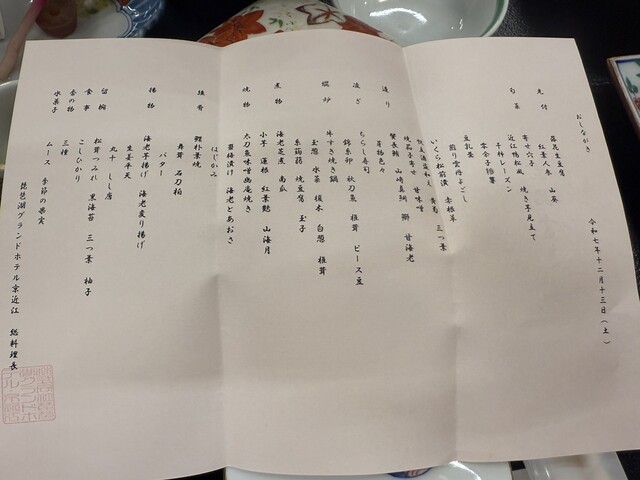 おしながき
令和七年十二月十三日(土)
先付
落花生豆腐
紅葉人参 山葵
旬菜
寄せ穴子
近江鴨松風 焼き芋見立て
干柿レーズン
零余子
豆乳蕈
煎り雲丹よごし
いくら松前漬 赤根草
三つ葉
焼茄子寄せ 甘味噌
造り
蟹長鮪 山崎真鯛 鰤 甘海老
妻物色々
凌ぎ
ちらし寿司
錦糸卵 秋刀魚 椎茸 ピース豆
鍋炉
牛すき焼き鍋
玉葱 水菜 榎木 白葱 椎茸
糸蒟蒻 焼豆腐 玉子
煮物
海老芝煮 南瓜
小芋 蓮根 紅葉麩 山海月
焼物
太刀魚味噌幽庵焼き
茗荷漬け 海老とあおさ
はじかみ
強肴
鰹朴葉焼
舞茸 石刀柏
バター
揚物
海老芋揚げ 海老変り揚げ
生姜半天
丸十 しし唐
留椀
松茸つみれ 黒海苔 三つ葉 柚子
食事
こしひかり
香の物
三種
水菓子
ムース 季節の果実
琵琶湖グランドホテル京近江 総料理長